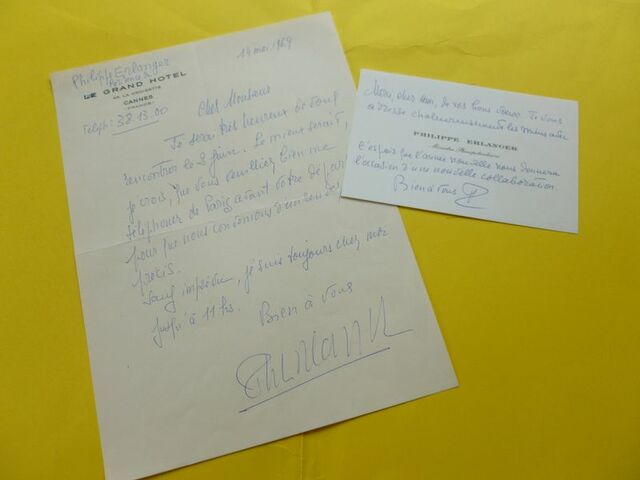 14 mai 1969
Philippe Erlanger
LE GRAND HOTEL
45, LA CROISETTE
CANNES
(FRANCE)
Téléph: 38.13.00
Cher Monsieur
Je serai très heureux de vous
rencontrer le 8 juin. Le mieux serait,
je crois, que vous veuillez bien me
téléphoner de Paris avant votre départ
pour que nous convenions d'un rendez
précis.
Sauf imprévu, je suis toujours chez moi
jusqu'à 11 hs.
Bien à vous
Merci, cher ami, de vos bons vœux. Je vous
adresse chaleureusement les miens avec
PHILIPPE ERLANGER
Ministre Plénipotentiaire
l'espoir que l'année nouvelle nous donnera
l'occasion d'une nouvelle collaboration.
Bien à vous